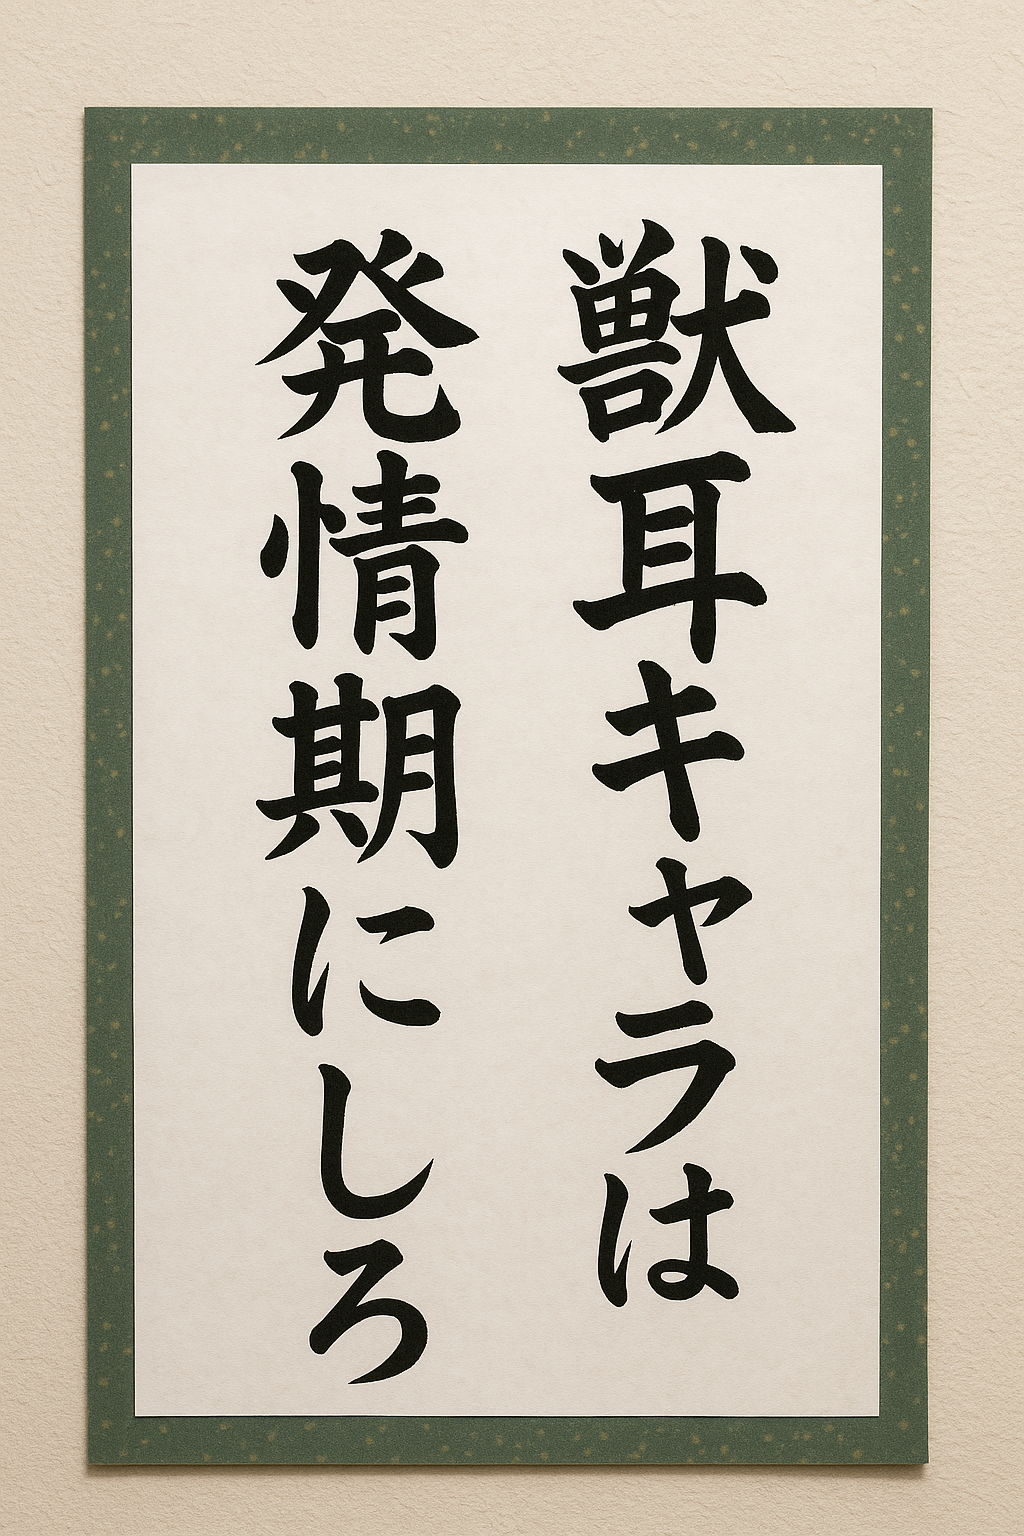 獣耳キャラは
発情期にしろ